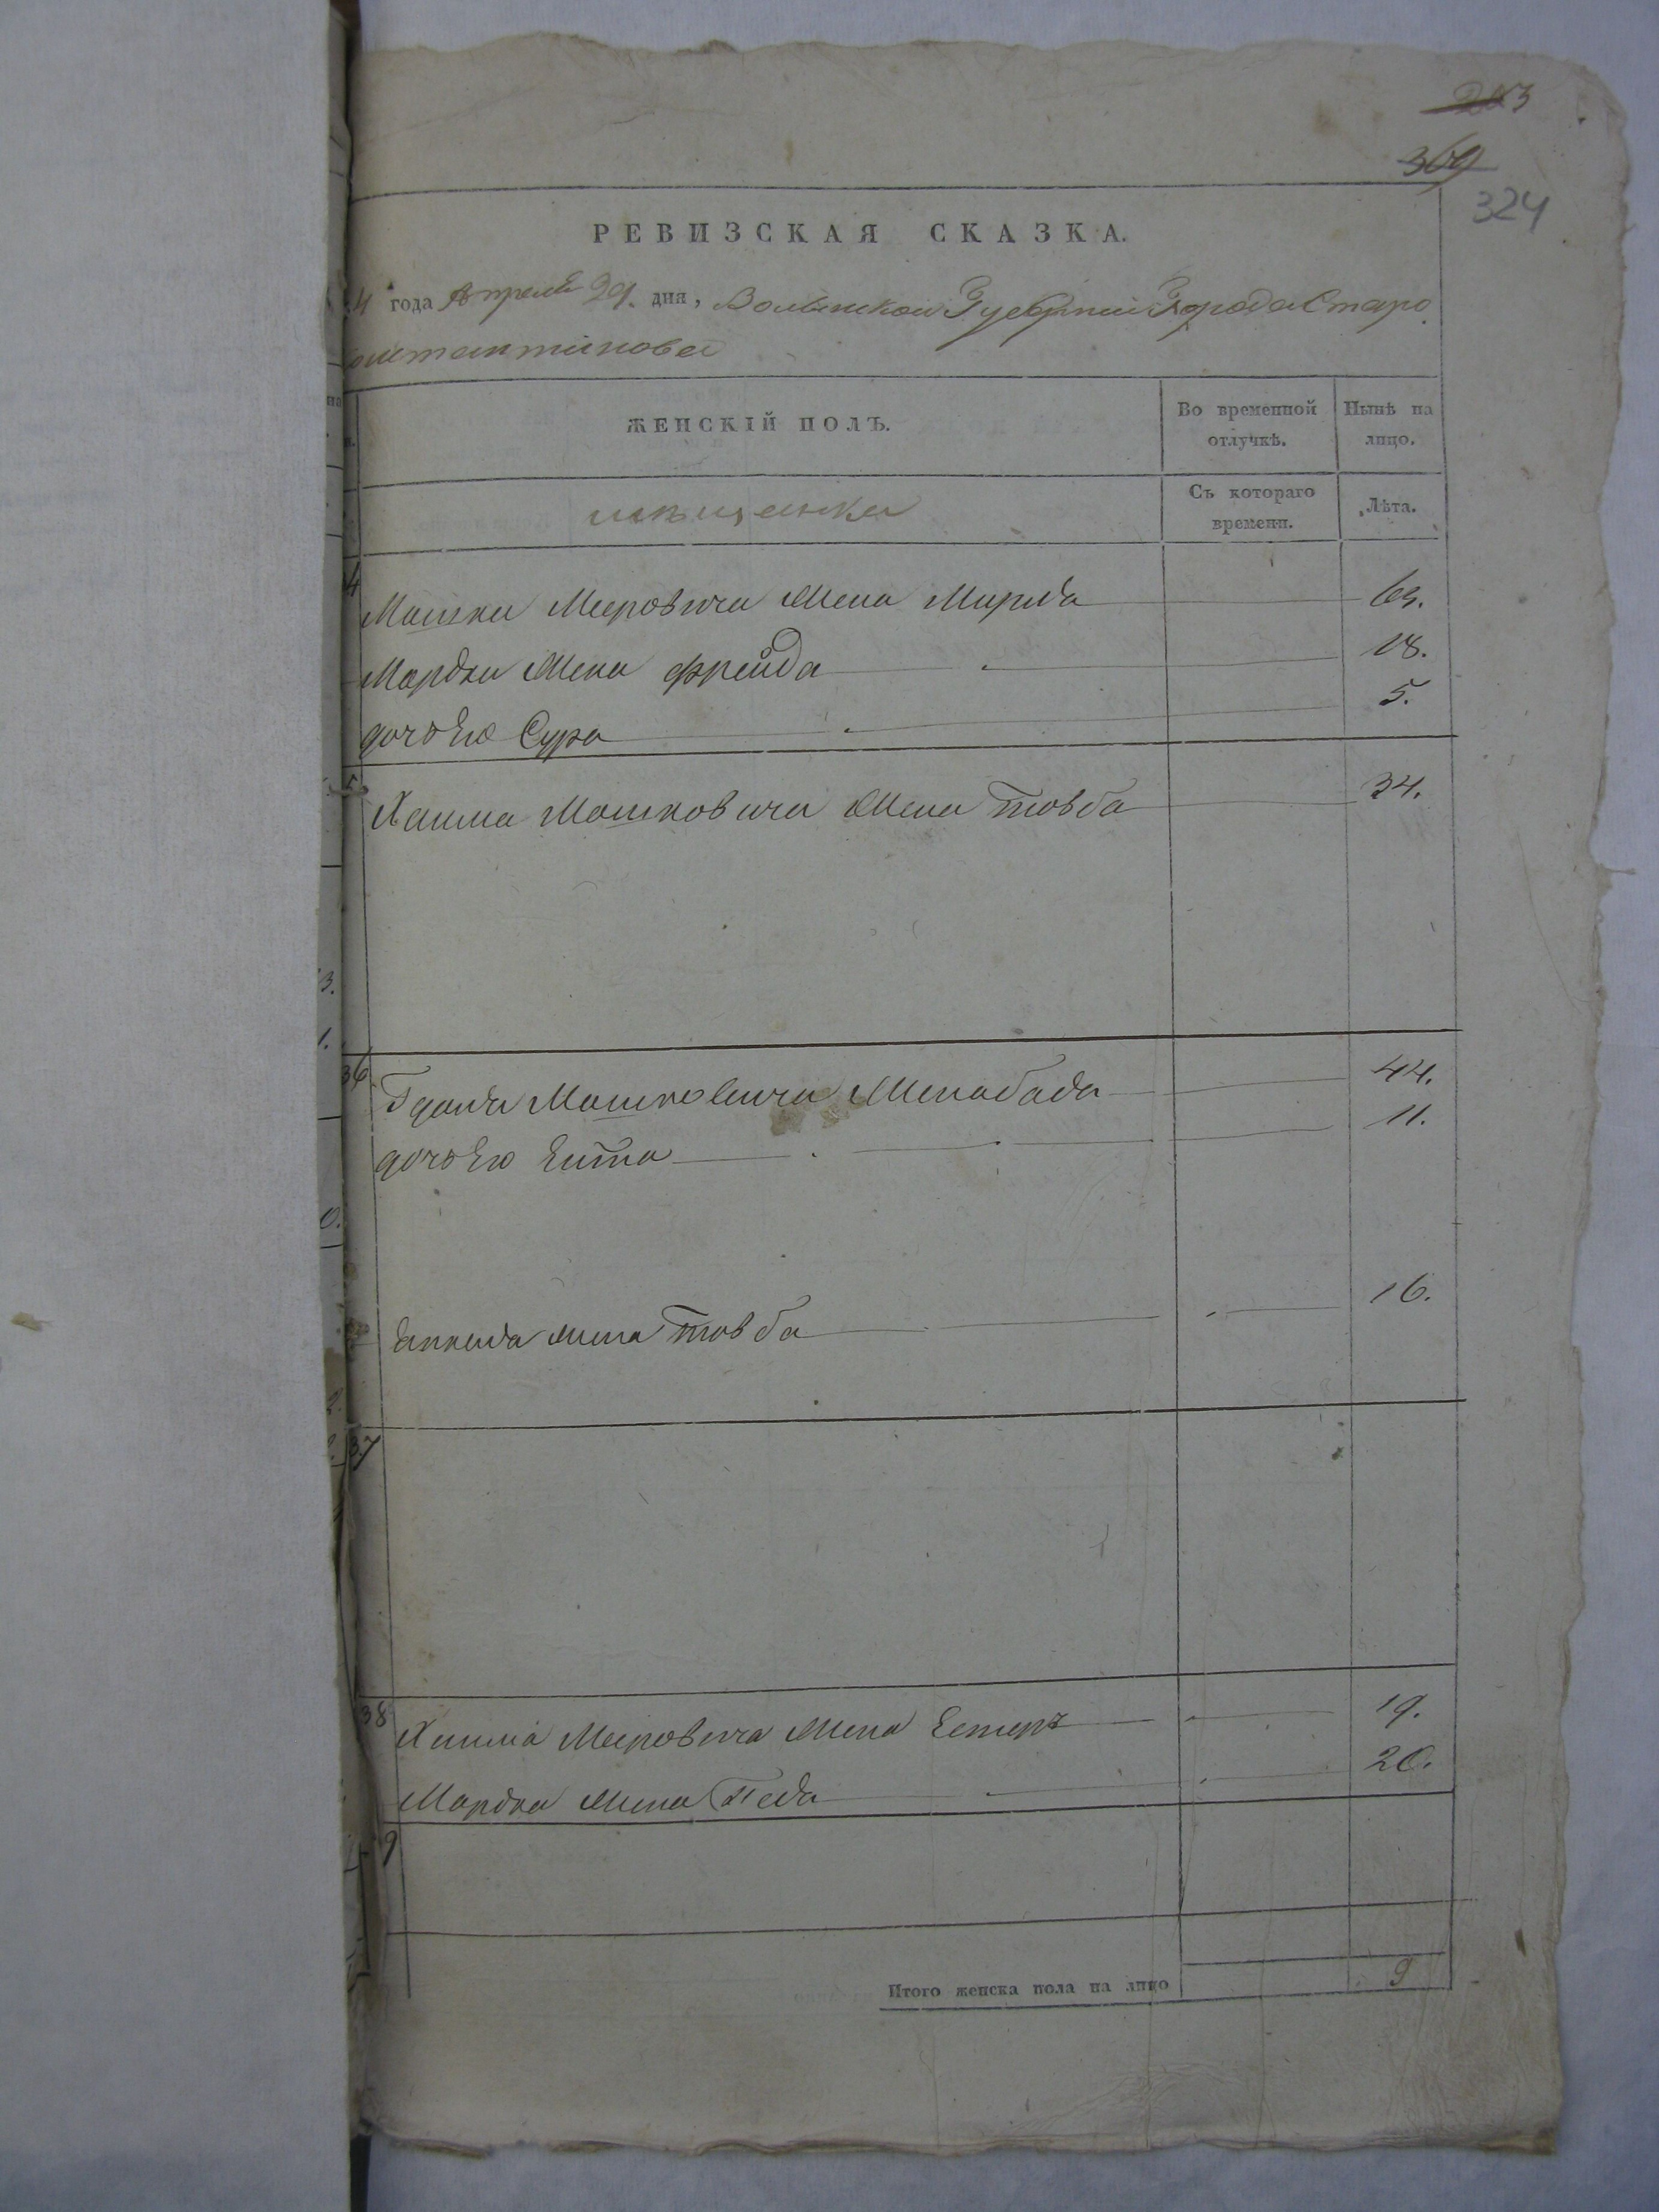 3
369
324
РЕВИЗСКАЯ СКАЗКА.
4 года Апреля 29. дня, Волынской Губернии Города Старо
константинова
ЖЕНСКІЙ ПОЛЪ.
Во временной отлучкѣ.
Нынѣ на лицо.
мѣщанки
Съ котораго времени.
Лѣта.
4
Мошки Мееровича Жена Мирля 63.
Мордки Жена Фрейда 18.
дочь Ею Сура 5.
5
Хаима Мошковича Жена Товба 34.
36
Мошковича Жена бада 44.
дочь Ею Еита 11.
Янкеля жена Товба 16.
37
38
Хаима Меировича Жена Естеръ 19.
Мордка Жена Геда 20.
9
Итого женска пола на лицо 9